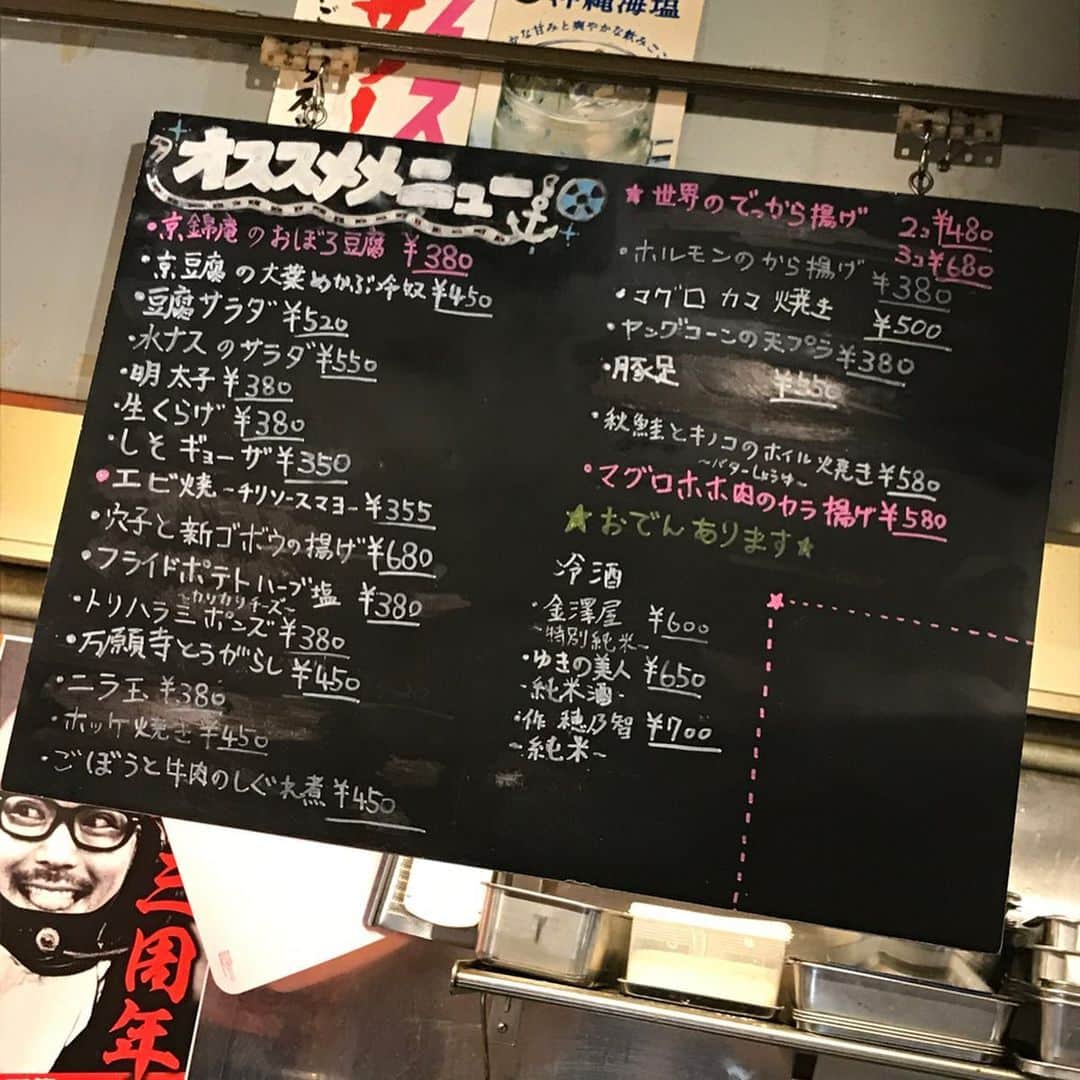 沖縄海塩
かな甘みと爽やかな飲みご
オススメメニュー
・京錦庵のおぼろ豆腐 ¥380
・京豆腐の大葉めかぶ冷奴 ¥450
・豆腐サラダ ¥520
・水ナスのサラダ ¥550
・明太子 ¥380
・生くらげ ¥380
・しそギョーザ ¥350
・エビ焼-チリソースマヨ- ¥355
・穴子と新ゴボウの揚げ ¥680
・フライドポテトハーブ塩 ¥380
~カリカリチーズ~
・トリハラミポンズ ¥380
・万願寺とうがらし ¥450
・ニラ玉 ¥380
・ホッケ焼き ¥450
・ごぼうと牛肉のしぐれ煮 ¥450
★世界のでっから揚げ 2コ¥480
3コ¥680
・ホルモンのから揚げ ¥380
・マグロカマ焼き ¥500
・ヤングコーンの天プラ ¥380
・豚足 ¥550
・秋鮭とキノコのホイル焼き ¥580
~バターしょうゆ~
・マグロホホ肉のカラ揚げ ¥580
★おでんあります★
冷酒
・金澤屋 ¥600
~特別純米~
・ゆきの美人 ¥650
-純米酒-
・作 穂乃智 ¥700
~純米~
三周年